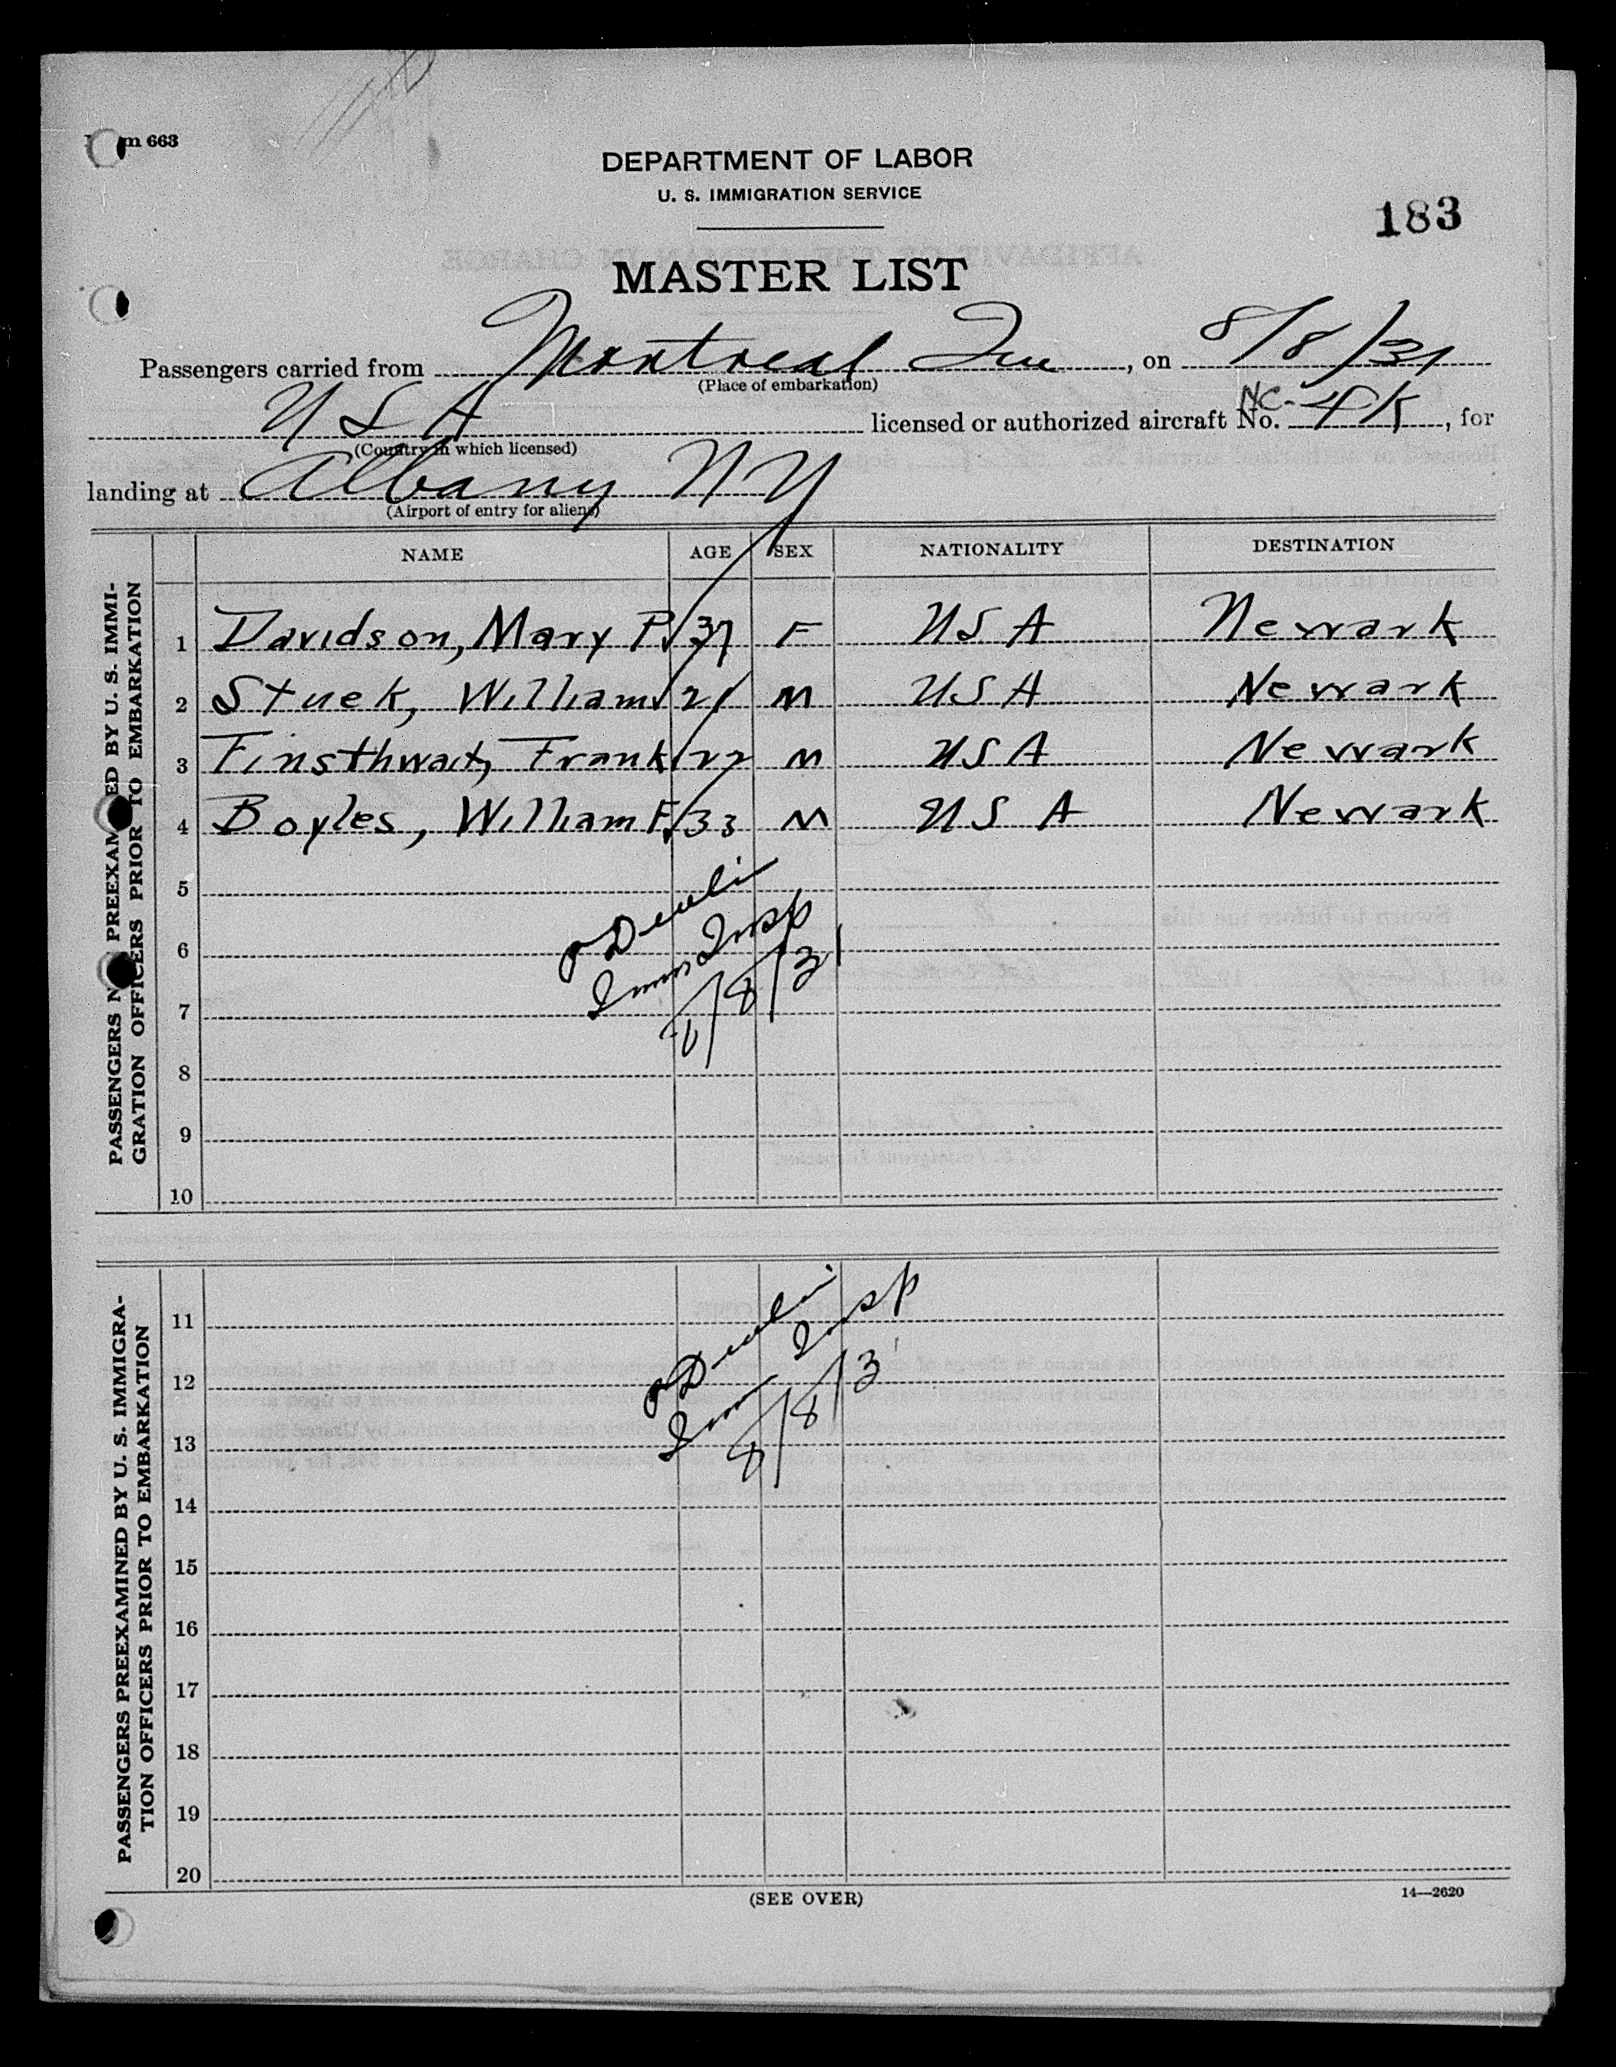 m 663
DEPARTMENT OF LABOR
U. S. IMMIGRATION SERVICE
183
MASTER LIST
Passengers carried from Montreal Que, on 8/8/31
(Place of embarkation)
U S A licensed or authorized aircraft No. NC-4K, for
(Country in which licensed)
landing at Albany N Y
(Airport of entry for aliens)
NAME AGE SEX NATIONALITY DESTINATION
PASSENGERS N PREEXAM ED BY U. S. IMMI-
GRATION OFFICERS PRIOR TO EMBARKATION
1 Davidson, Mary P. 37 F USA Newark
2 Stuek, William 21 M USA Newark
3 Finsthwait, Frank 22 M USA Newark
4 Boyles, William F. 33 M USA Newark
5
6
Imm Insp
7
8/8/31
8
9
10
PASSENGERS PREEXAMINED BY U. S. IMMIGRA-
TION OFFICERS PRIOR TO EMBARKATION
11
12
Imm Insp
13
8/8/31
14
15
16
17
18
19
20
(SEE OVER)
14—2620